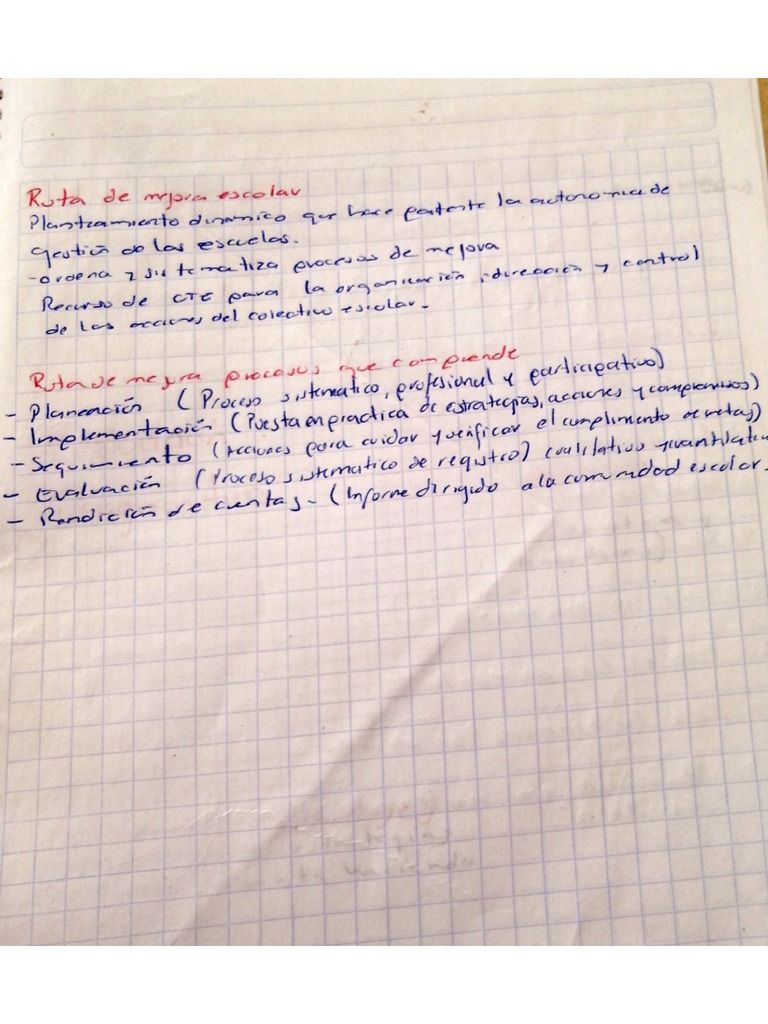 Ruta de mejora escolar
Planteamiento dinamico que hace patente la autonomia de
gestión de las escuelas.
-ordena y sistematiza procesos de mejora
Recurso de CTE para la organización, dirección y control
de las acciones del colectivo escolar.
Ruta de mejora procesos que comprende
- Planeación (Proceso sistematico, profesional y participativo)
- Implementación (Puesta en practica de estrategias, acciones y compromisos)
- Seguimiento (Acciones para cuidar y verificar el cumplimento de metas)
- Evaluación (Proceso sistematico de registro) cualitativo y cuantitativo
- Rendición de cuentas. (Informe dirigido a la comunidad escolar.